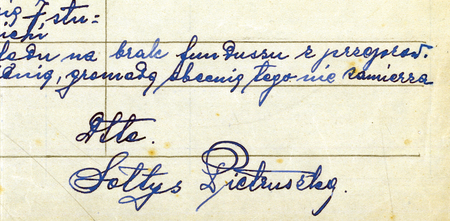 nią 7 stu=
ładu na brak funduszu z przeprow.
dnię, gromadą obecnią tego nie zamierza
Dtto.
Sołtys Pietruszka.